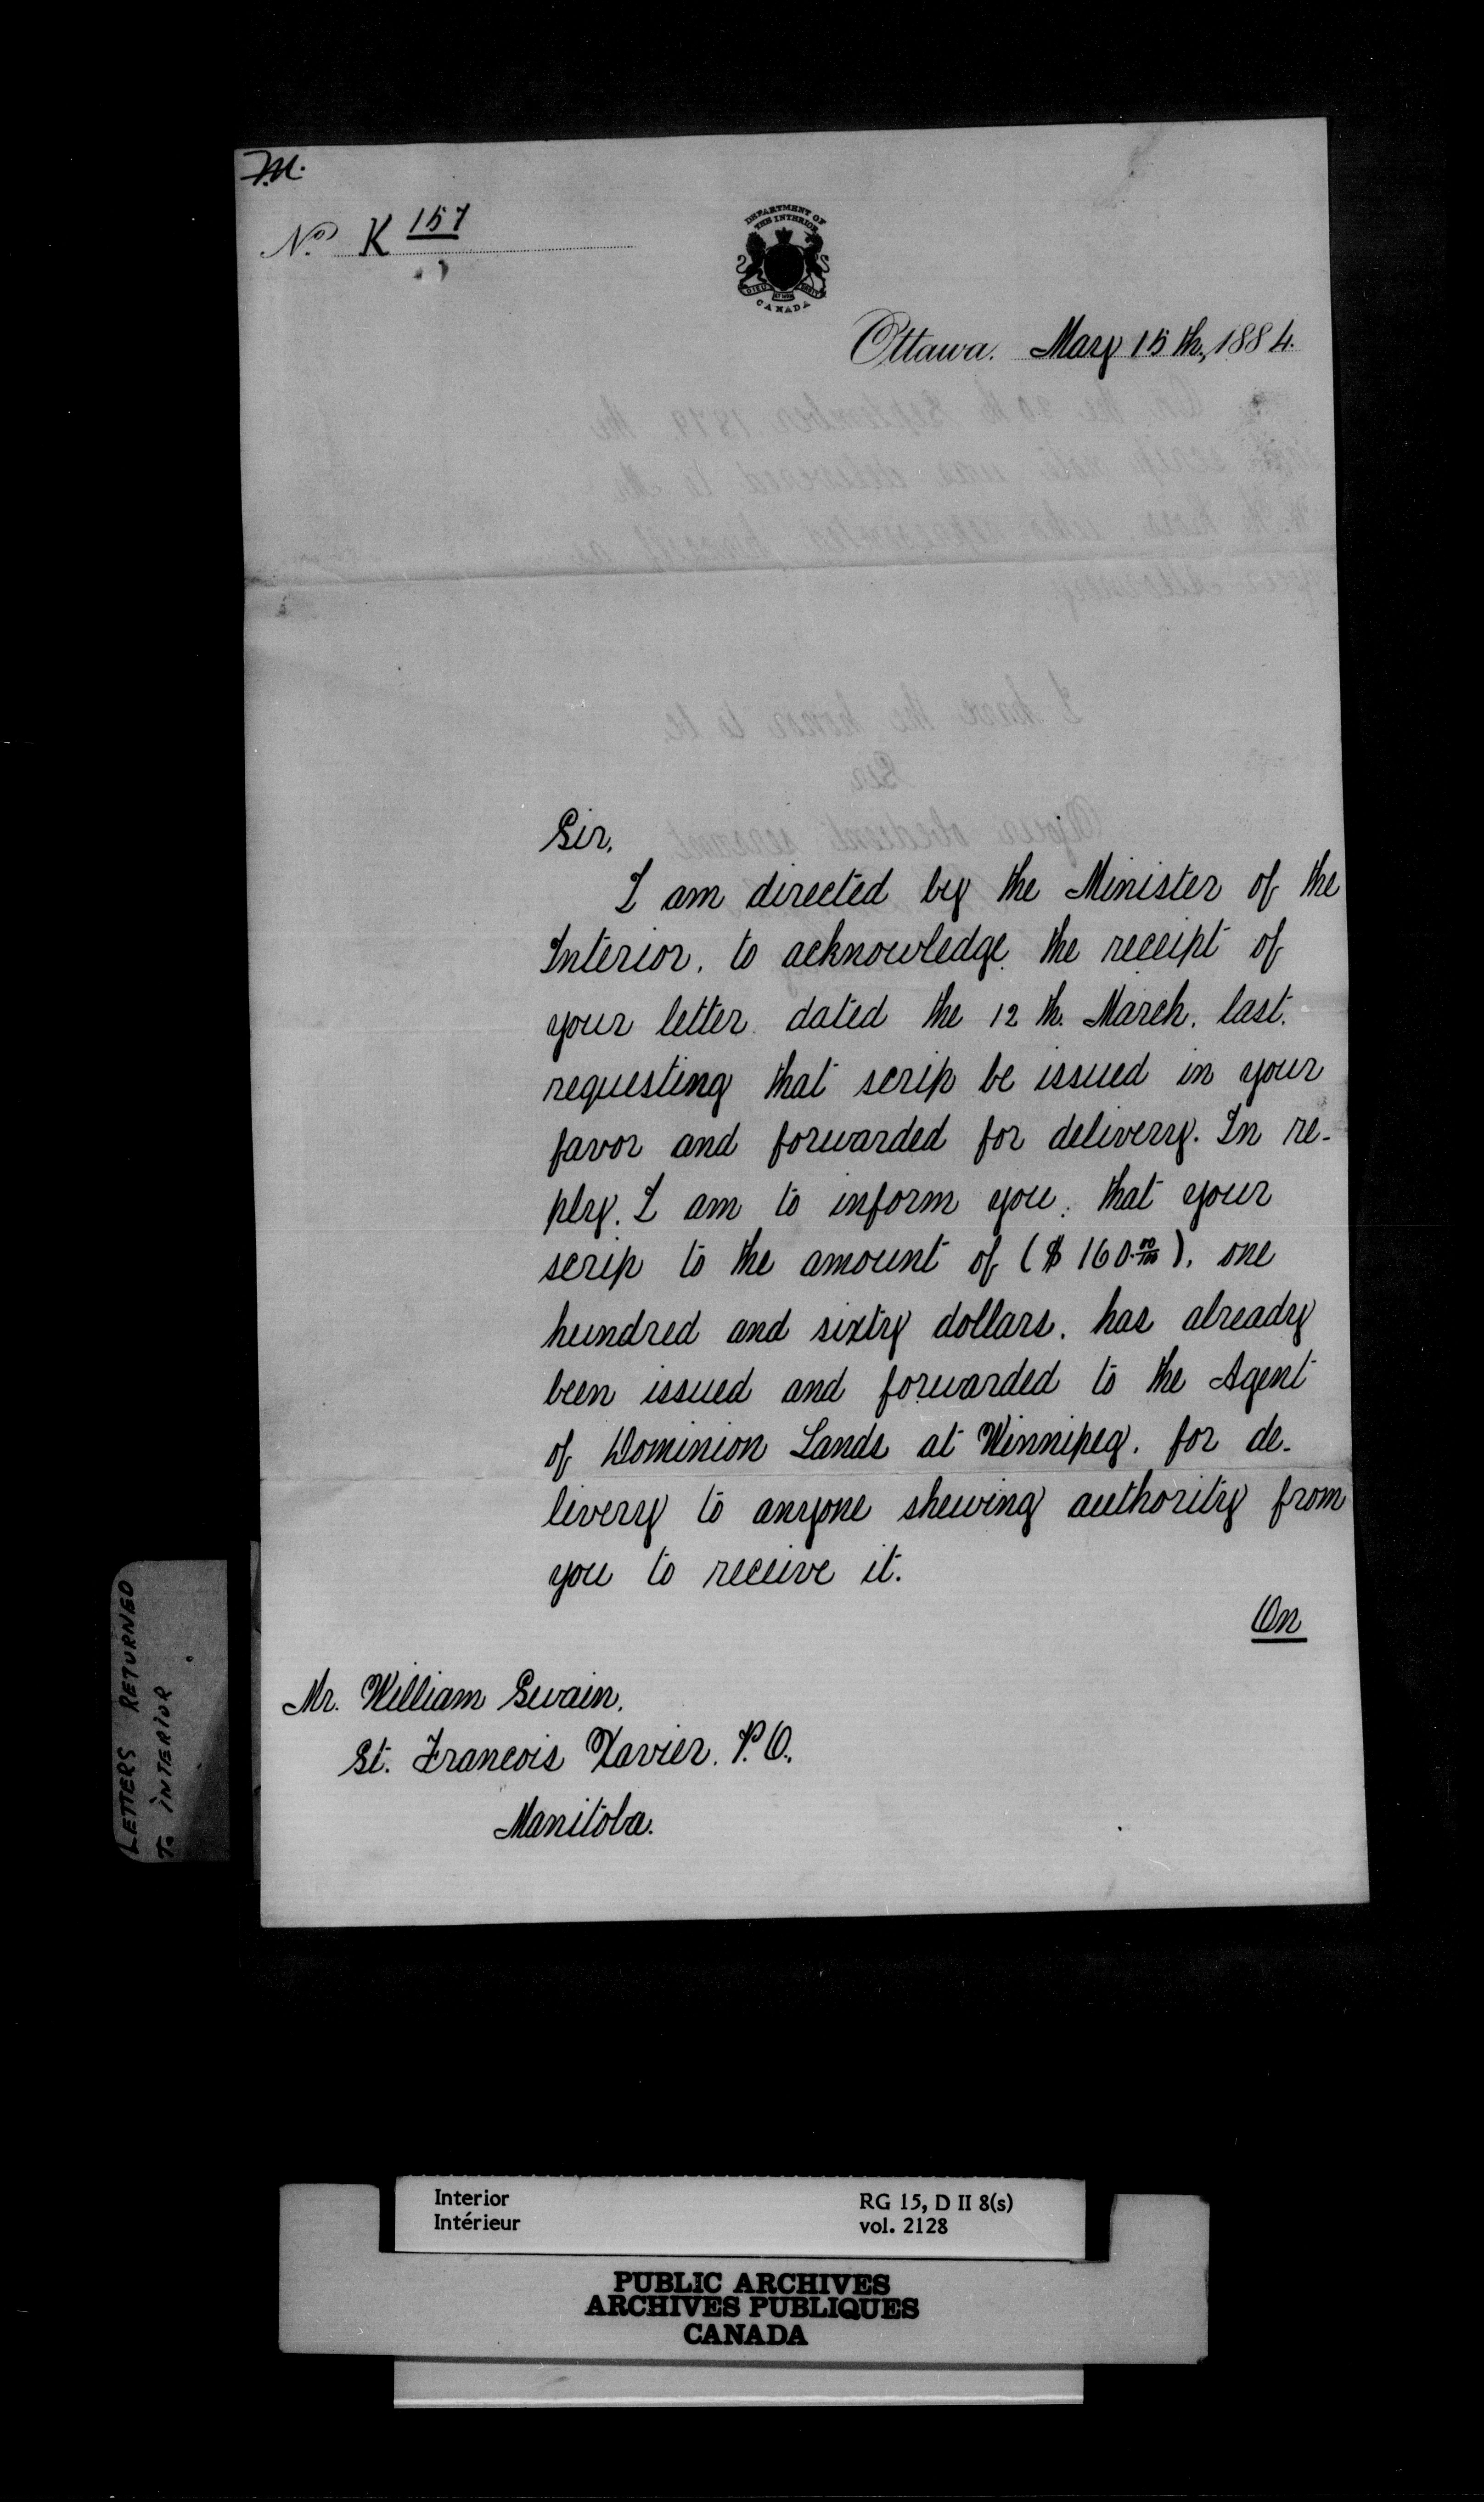 M.
No. K 157
DEPARTMENT OF
THE INTERIOR
CANADA
Ottawa. May 15th, 1884.
Sir,
I am directed by the Minister of the
Interior, to acknowledge the receipt of
your letter dated the 12th. March, last,
requesting that scrip be issued in your
favor and forwarded for delivery. In re-
ply, I am to inform you, that your
scrip to the amount of ($160.00/100), one
hundred and sixty dollars, has already
been issued and forwarded to the Agent
of Dominion Lands at Winnipeg, for de-
livery to anyone shewing authority from
you to receive it.
On
Mr. William Swain,
St. Francois Xavier, P.O.,
Manitoba.
LETTERS RETURNED
To INTERIOR
Interior
Intérieur
RG 15, D II 8(s)
vol. 2128
PUBLIC ARCHIVES
ARCHIVES PUBLIQUES
CANADA